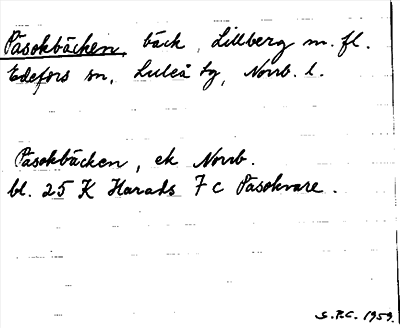 Påsokbäcken, bäck, Lillberg m. fl.
Edefors sn, Luleå tg, Norrb. l.
Påsokbäcken, ek Norrb.
bl. 25 K Harads 7 c Påsokvare.
G.P.C. 1959.